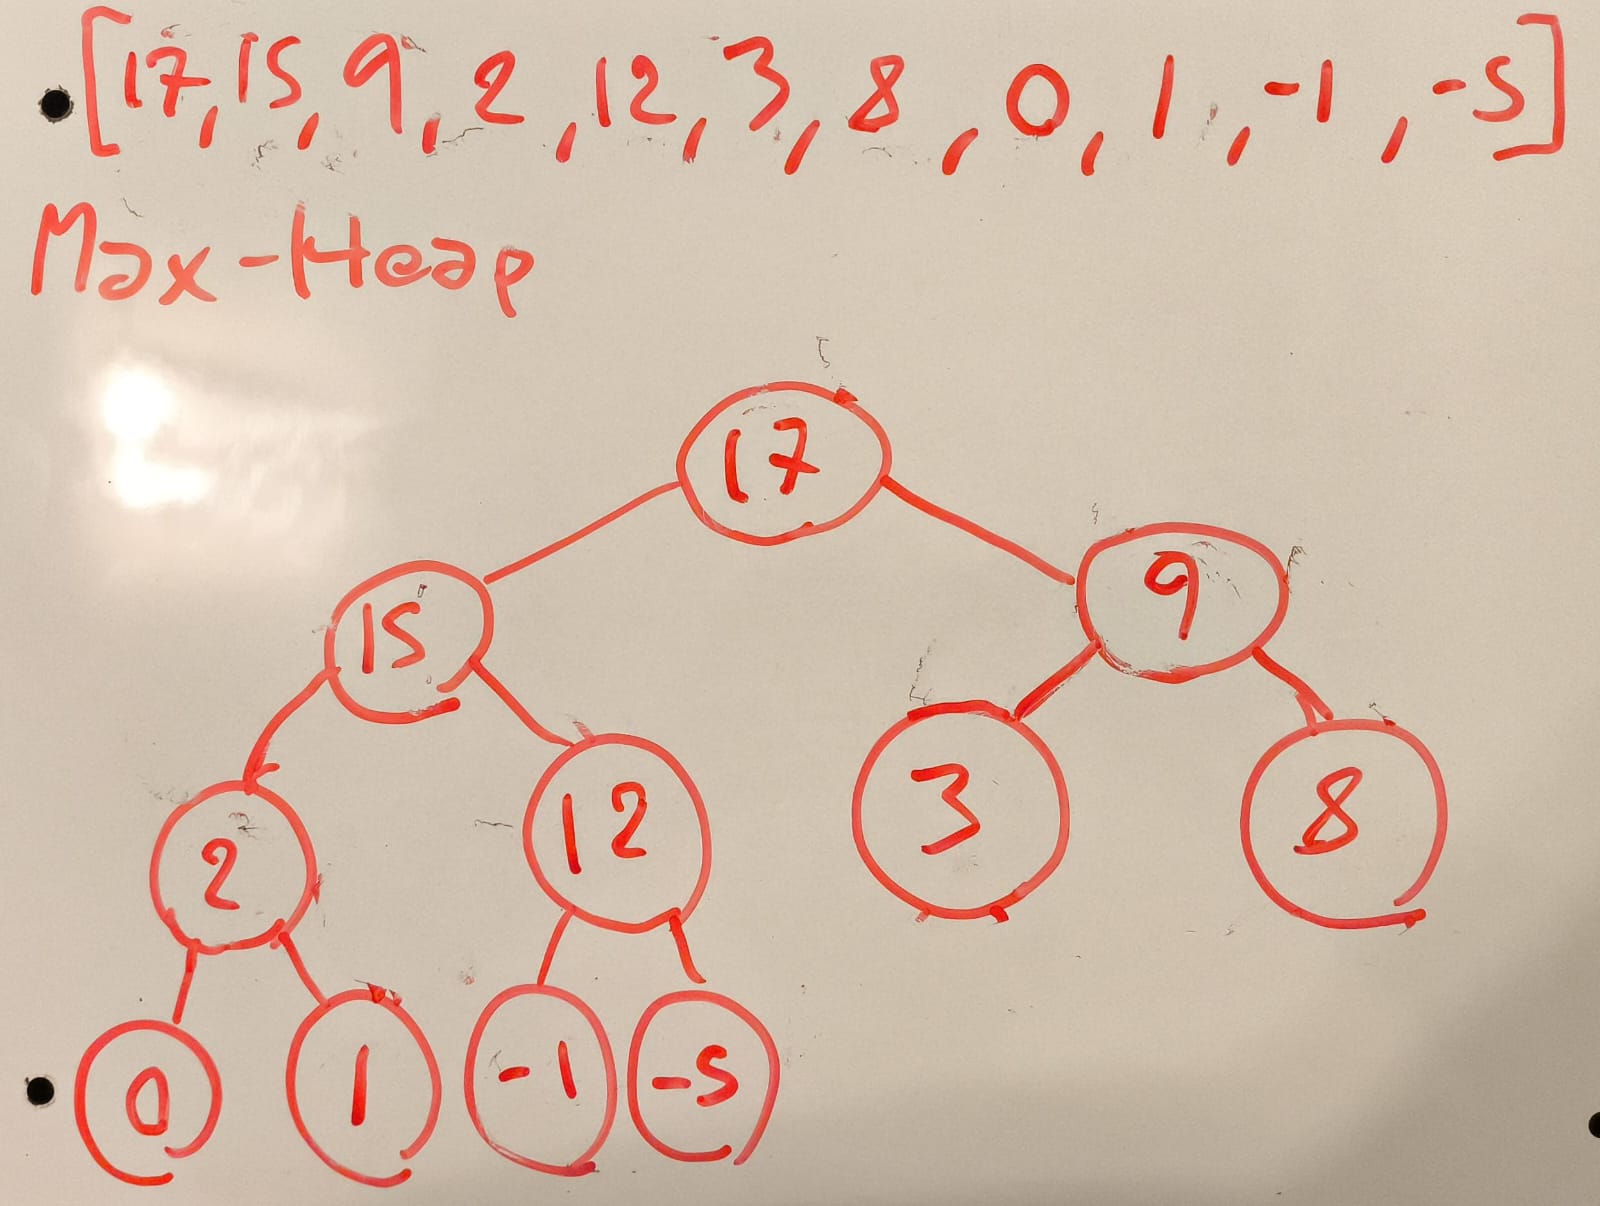 [17, 15, 9, 2, 12, 3, 8, 0, 1, -1, -5]
Max-Heap
17
15 9
2 12 3 8
0 1 -1 -5